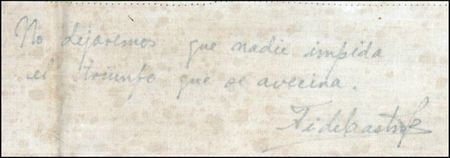 No dejaremos que nadie impida
el triunfo que se avecina.
Fidel Castro R